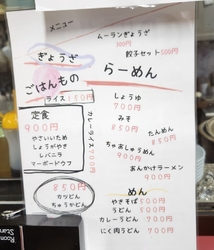 メニュー
ぎょうざ
ムーランぎょうざ
500円
餃子セット500円
ごはんもの
ライス150円
定食
900円
やさいいため
しょうがやき
レバニラ
マーボードウフ
カレーライス700円
850円
カツどん
ちゅうかどん
らーめん
しょうゆ
700円
みそ
850円
たんめん
850円
ちゃあしゅうめん
900円
あんかけラーメン
900円
めん
やきそば 500円
うどん 500円
カレーうどん 700円
にく肉うどん 700円